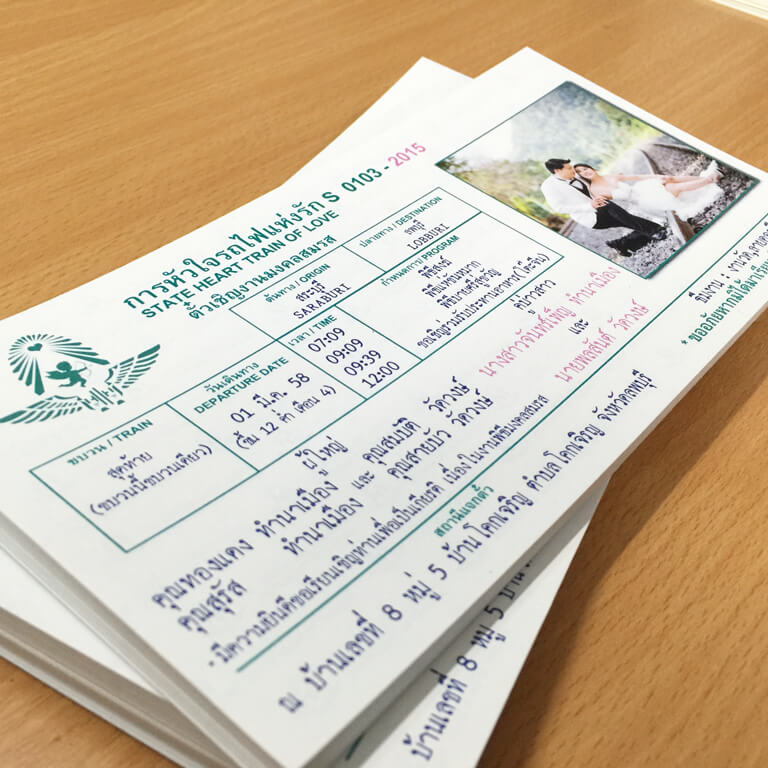 การหัวใจรถไฟแห่งรัก S 0103 - 2015
STATE HEART TRAIN OF LOVE
ตั๋วเชิญงานมงคลสมรส
ต้นทาง / ORIGIN
สระบุรี
SARABURI
ปลายทาง / DESTINATION
ลพบุรี
LOBBURI
ขบวน / TRAIN
สุดท้าย
(ขบวนนี้ขบวนเดียว)
วันเดินทาง
DEPARTURE DATE
01 มี.ค. 58
(ขึ้น 12 ค่ำ เดือน 4)
เวลา / TIME
07:09
09:09
09:39
12:00
กำหนดการ/ PROGRAM
พิธีสงฆ์
พิธีแห่ขันหมาก
พิธีบายศรีสู่ขวัญ
ขอเชิญร่วมรับประทานอาหาร (โต๊ะจีน)
ผู้ใหญ่
คู่บ่าวสาว
คุณทองแดง ทำนาเมือง และ คุณสมบัติ วัดวงษ์
คุณสุรัส ทำนาเมือง คุณสายบัว วัดวงษ์
นางสาวจันทร์เพ็ญ ทำนาเมือง
และ
นายพลสันต์ วัดวงษ์
- มีความยินดีขอเรียนเชิญท่านเพื่อเป็นเกียรติ เนื่องในงานพิธีมงคลสมรส
สถานีแจกตั๋ว
ณ บ้านเลขที่ 8 หมู่ 5 บ้านโคกเจริญ ตำบลโคกเจริญ จังหวัดลพบุรี
* ขออภัยหากมิได้มาเรียน
บ้านเลขที่ 8 หมู่ 5 บ้าน